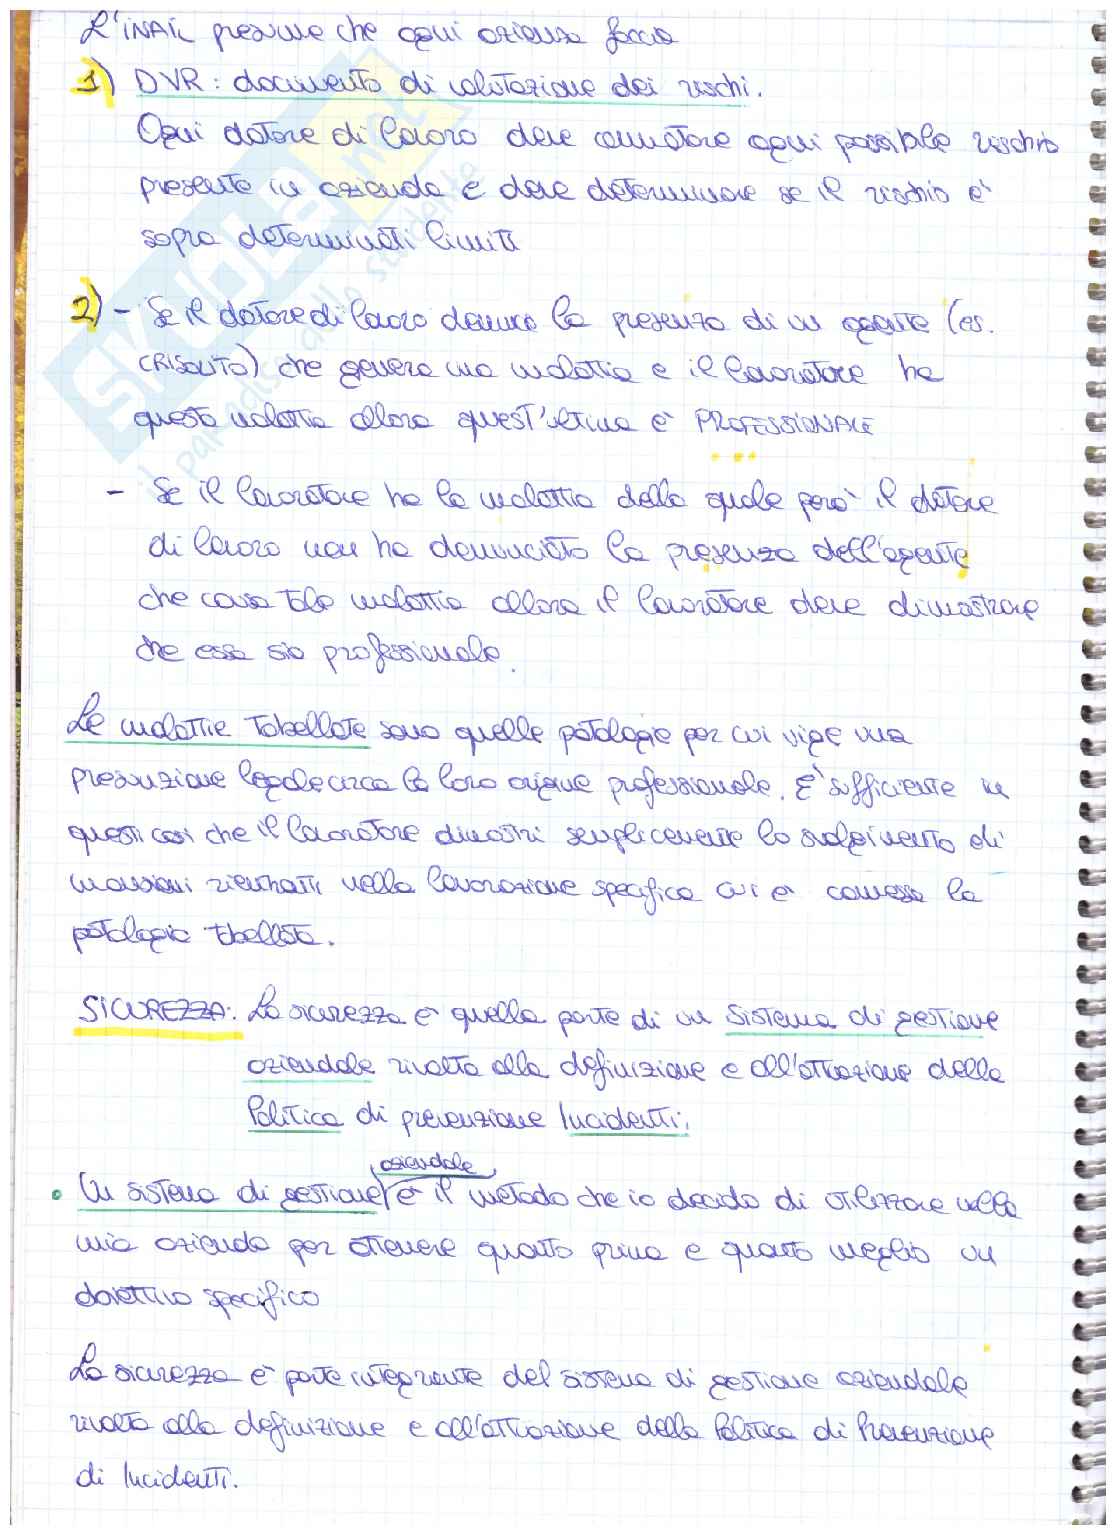 L'INAIL presume che ogni azienda faccia
1) DVR: documento di valutazione dei rischi.
Ogni datore di lavoro deve connotare ogni possibile rischio
presente in azienda e deve determinare se il rischio è
sopra determinati limiti
2) - Se il datore di lavoro denuncia la presenza di un agente (es.
CRISOLITO) che genera una malattia e il lavoratore ha
questa malattia allora quest'ultima è PROFESSIONALE
- Se il lavoratore ha la malattia della quale però il datore
di lavoro non ha denunciato la presenza dell'agente
che causa tale malattia allora il lavoratore deve dimostrare
che essa sia professionale.
Le malattie tabellate sono quelle patologie per cui vige una
presunzione legale circa la loro origine professionale. E' sufficiente in
questi casi che il lavoratore dimostri semplicemente lo svolgimento di
mansioni rientranti nella lavorazione specifica cui è connessa la
patologia tabellata.
SICUREZZA: La sicurezza è quella parte di un Sistema di gestione
aziendale rivolta alla definizione e all'attuazione della
Politica di prevenzione Incidenti;
aziendale
• Un sistema di gestione è il metodo che io decido di utilizzare nella
mia azienda per ottenere quanto prima e quanto meglio un
obiettivo specifico
La sicurezza è parte integrante del sistema di gestione aziendale
rivolta alla definizione e all'attuazione della Politica di Prevenzione
di Incidenti.
SKUOLA.net
il paradiso dello studente